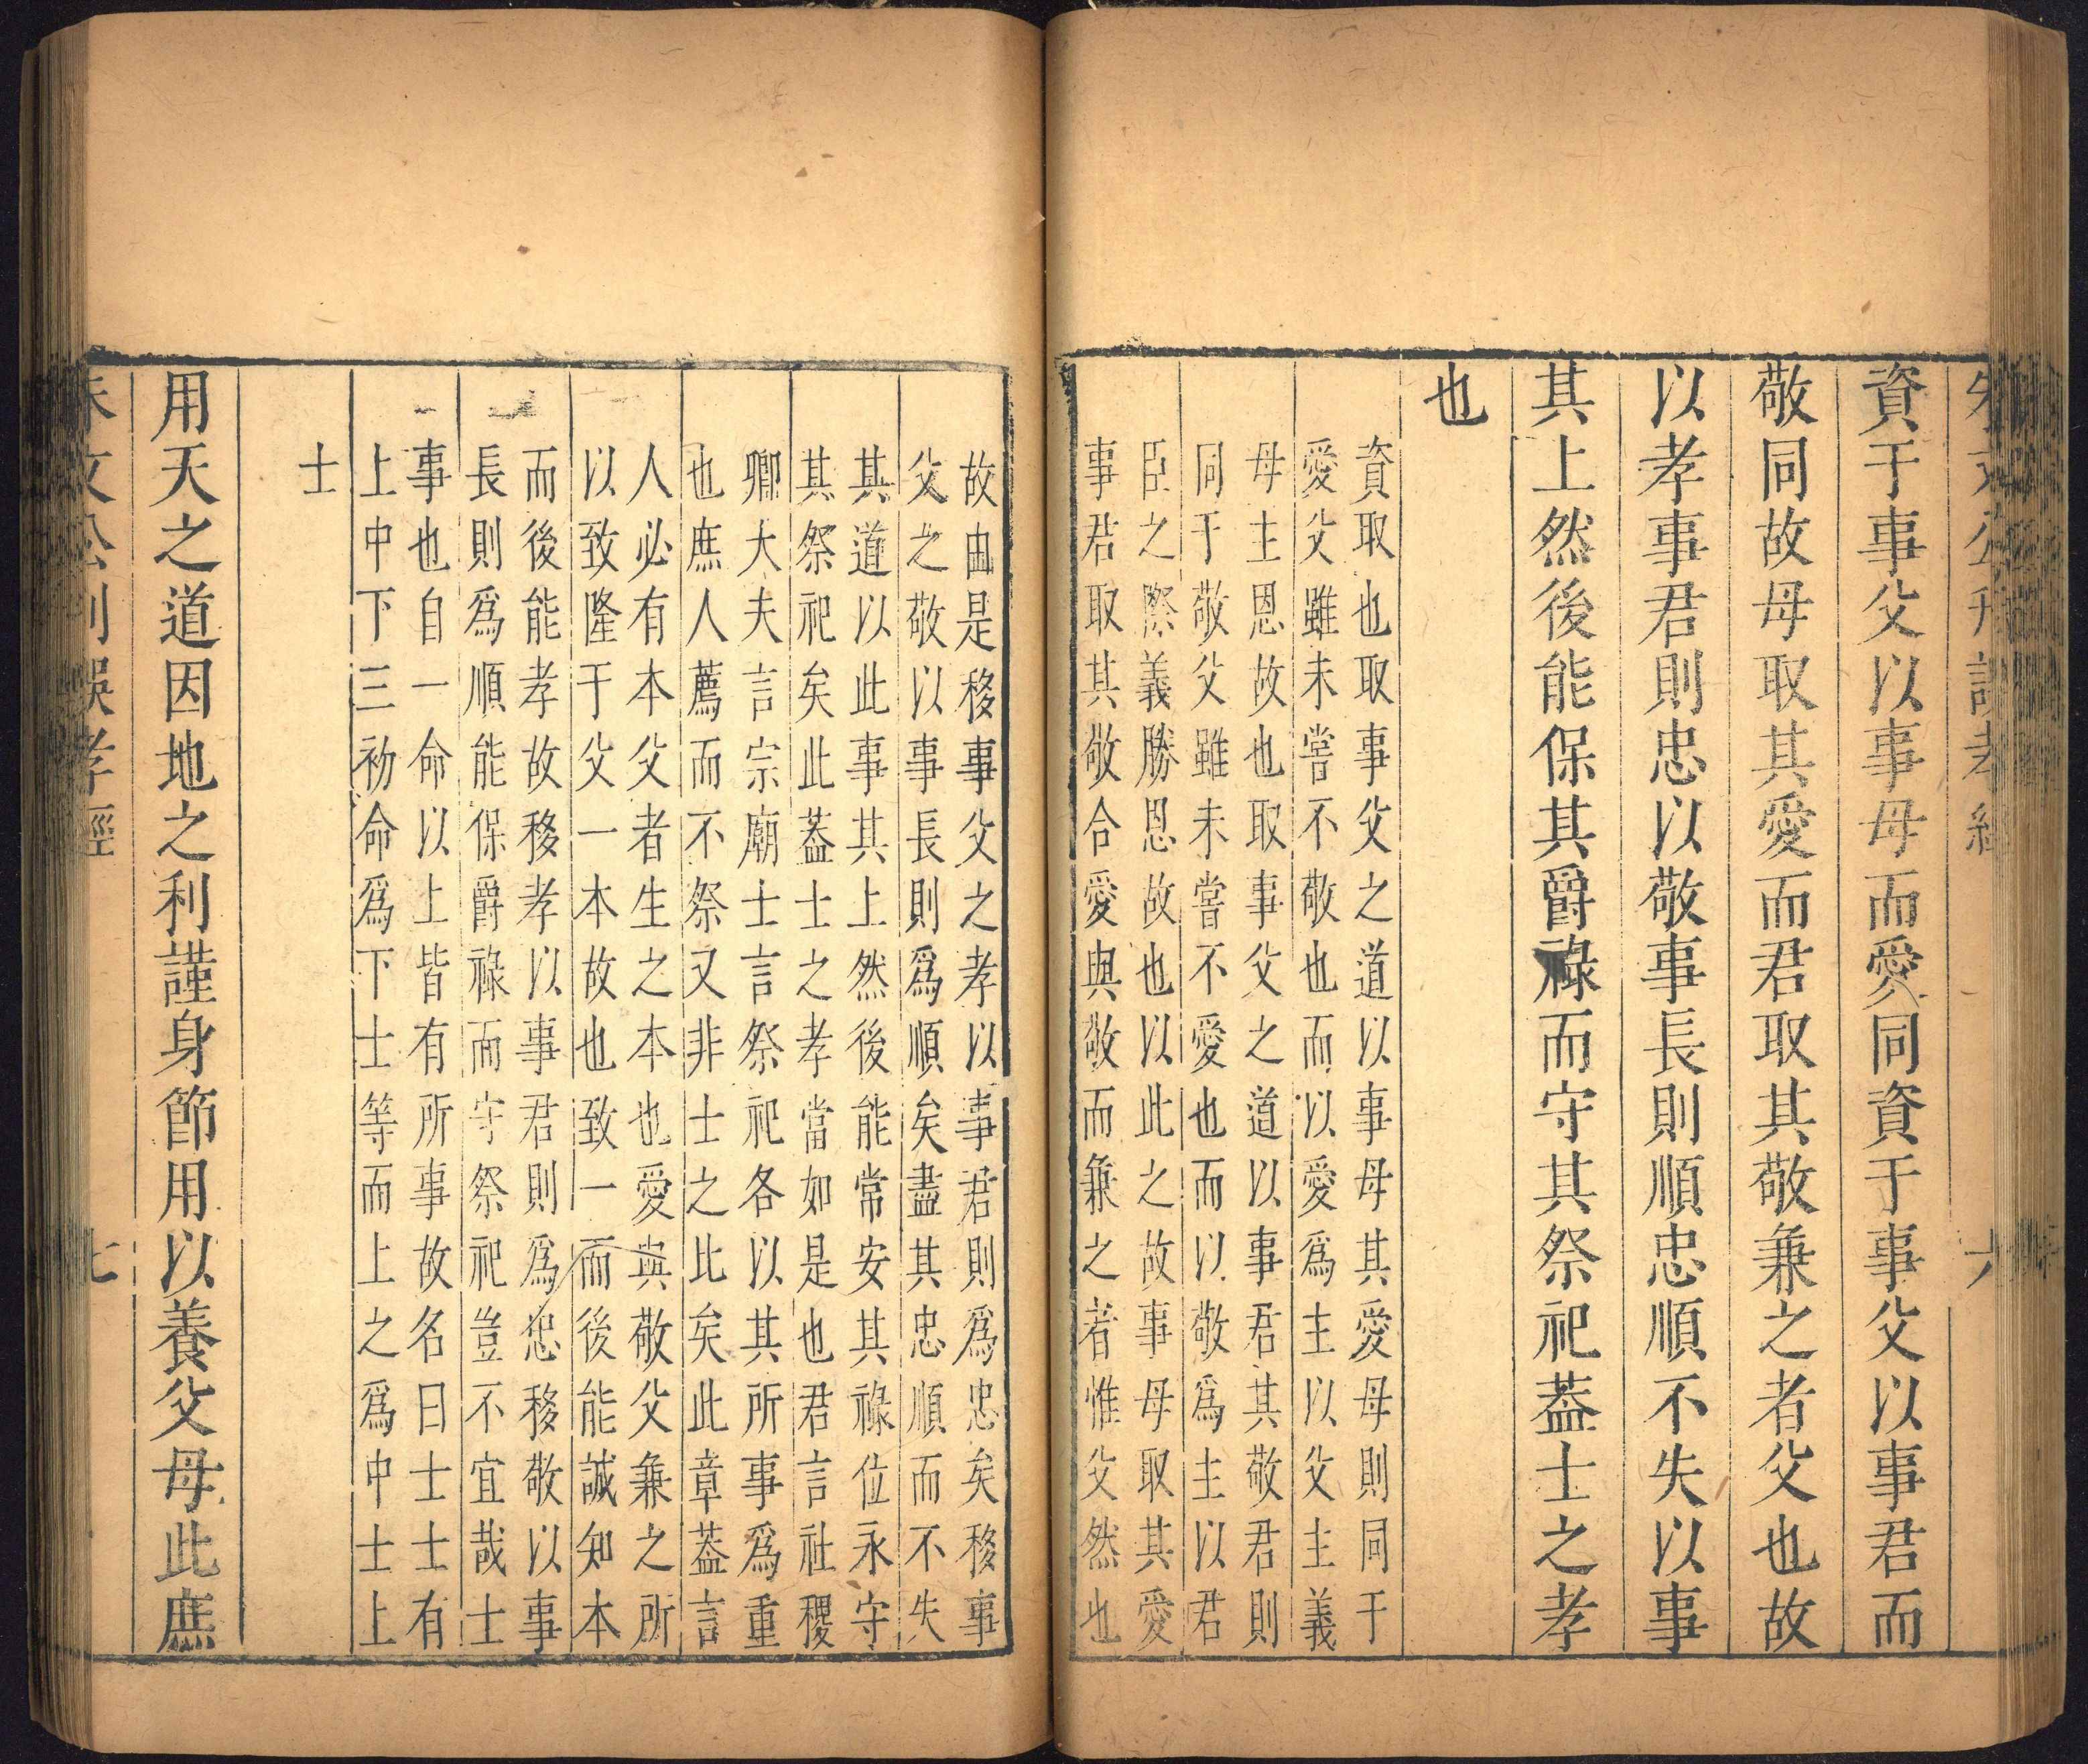 朱文公刊誤孝經
六
資于事父以事母而愛同資于事父以事君而
敬同故母取其愛而君取其敬兼之者父也故
以孝事君則忠以敬事長則順忠順不失以事
其上然後能保其爵祿而守其祭祀蓋士之孝
也
資取也取事父之道以事母其愛母則同于
愛父雖未嘗不敬也而以愛爲主以父主義
母主恩故也取事父之道以事君其敬君則
同于敬父雖未嘗不愛也而以敬爲主以君
臣之際義勝恩故也以此之故事母取其愛
事君取其敬合愛與敬而兼之者惟父然也
故由是移事父之孝以事君則爲忠矣移事
父之敬以事長則爲順矣盡其忠順而不失
其道以此事其上然後能常安其祿位永守
其祭祀矣此蓋士之孝當如是也君言社稷
卿大夫言宗廟士言祭祀各以其所事爲重
也庶人薦而不祭又非士之比矣此章蓋言
人必有本父者生之本也愛與敬父兼之所
以致隆于父一本故也致一而後能誠知本
而後能孝故移孝以事君則爲忠移敬以事
長則爲順能保爵祿而守祭祀豈不宜哉士
事也自一命以上皆有所事故名曰士士有
上中下三初命爲下士等而上之爲中士上
士
用天之道因地之利謹身節用以養父母此庶
朱文公刊誤孝經
七